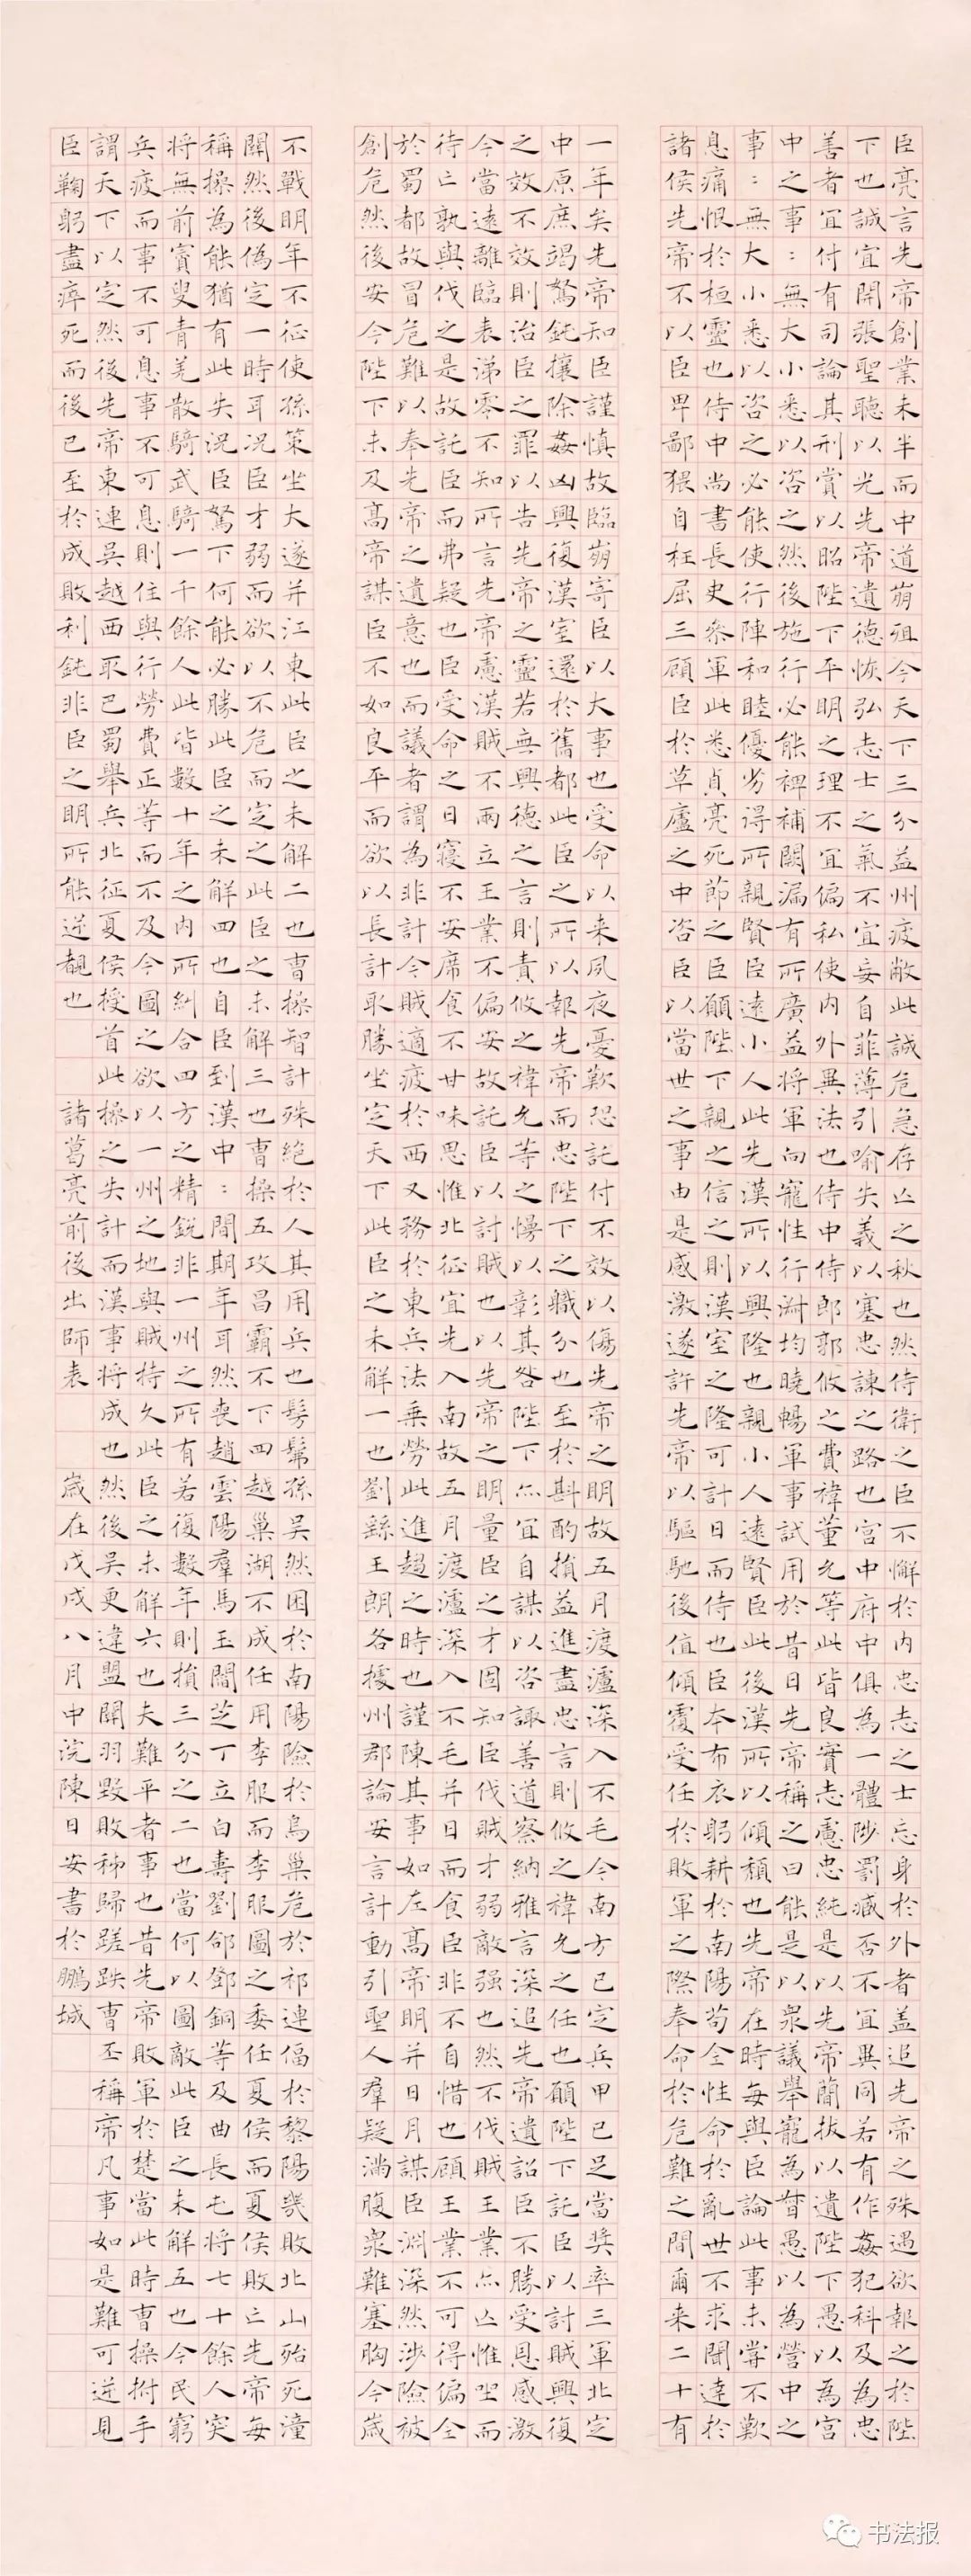 臣亮言先帝創業未半而中道崩殂今天下三分益州疲敝此誠危急存亡之秋也然侍衛之臣不懈於內忠志之士忘身於外者盖追先帝之殊遇欲報之於陛
下也誠宜開張聖聽以光先帝遺德恢弘志士之氣不宜妄自菲薄引喻失義以塞忠諫之路也宮中府中俱為一體陟罰臧否不宜異同若有作姦犯科及為忠
善者宜付有司論其刑賞以昭陛下平明之理不宜偏私使內外異法也侍中侍郎郭攸之費禕董允等此皆良實志慮忠純是以先帝簡拔以遺陛下愚以為宮
中之事：無大小悉以咨之然後施行必能裨補闕漏有所廣益將軍向寵性行淑均曉暢軍事試用於昔日先帝稱之曰能是以衆議舉寵為督愚以為營中之
事：無大小悉以咨之必能使行陣和睦優劣得所親賢臣遠小人此先漢所以興隆也親小人遠賢臣此後漢所以傾頹也先帝在時每與臣論此事未嘗不歎
息痛恨於桓靈也侍中尚書長史參軍此悉貞亮死節之臣願陛下親之信之則漢室之隆可計日而待也臣本布衣躬耕於南陽苟全性命於亂世不求聞達於
諸侯先帝不以臣卑鄙猥自枉屈三顧臣於草廬之中咨臣以當世之事由是感激遂許先帝以驅馳後值傾覆受任於敗軍之際奉命於危難之間爾来二十有
一年矣先帝知臣謹慎故臨崩寄臣以大事也受命以来夙夜憂歎恐託付不效以傷先帝之明故五月渡瀘深入不毛今南方已定兵甲已足當奬率三軍北定
中原庶竭駑鈍攘除姦凶興復漢室還於舊都此臣之所以報先帝而忠陛下之職分也至於斟酌損益進盡忠言則攸之禕允之任也願陛下託臣以討賊興復
之效不效則治臣之罪以告先帝之靈若無興德之言則責攸之禕允等之慢以彰其咎陛下亦宜自謀以咨諏善道察納雅言深追先帝遺詔臣不勝受恩感激
今當遠離臨表涕零不知所言先帝慮漢賊不兩立王業不偏安故託臣以討賊也以先帝之明量臣之才固知臣伐賊才弱敵强也然不伐賊王業亦亡惟坐而
待亡孰與伐之是故託臣而弗疑也臣受命之日寢不安席食不甘味思惟北征宜先入南故五月渡瀘深入不毛并日而食臣非不自惜也顧王業不可得偏全
於蜀都故冒危難以奉先帝之遺意也而議者謂為非計今賊適疲於西又務於東兵法乘勞此進趨之時也謹陳其事如左高帝明并日月謀臣淵深然涉險被
創危然後安今陛下未及高帝謀臣不如良平而欲以長計取勝坐定天下此臣之未解一也劉繇王朗各據州郡論安言計動引聖人羣疑滿腹衆難塞胸今歲
不戰明年不征使孫策坐大遂并江東此臣之未解二也曹操智計殊絕於人其用兵也髣髴孫吳然困於南陽險於烏巢危於祁連偪於黎陽幾敗北山殆死潼
關然後偽定一時耳況臣才弱而欲以不危而定之此臣之未解三也曹操五攻昌霸不下四越巢湖不成任用李服而李服圖之委任夏侯而夏侯敗亡先帝每
稱操為能猶有此失況臣駑下何能必勝此臣之未解四也自臣到漢中：間期年耳然喪趙雲陽羣馬玉閻芝丁立白壽劉郃鄧銅等及曲長屯將七十餘人突
將無前賓叟青羌散騎武騎一千餘人此皆數十年之內所糾合四方之精銳非一州之所有若復數年則損三分之二也當何以圖敵此臣之未解五也今民窮
兵疲而事不可息事不可息則住與行勞費正等而不及今圖之欲以一州之地與賊持久此臣之未解六也夫難平者事也昔先帝敗軍於楚當此時曹操拊手
謂天下以定然後先帝東連吳越西取巴蜀舉兵北征夏侯授首此操之失計而漢事將成也然後吳更違盟關羽毀敗秭歸蹉跌曹丕稱帝凡事如是難可逆見
臣鞠躬盡瘁死而後已至於成敗利鈍非臣之明所能逆覩也 諸葛亮前後出師表 歲在戊戌八月中浣陳日安書於鵬城
书法报